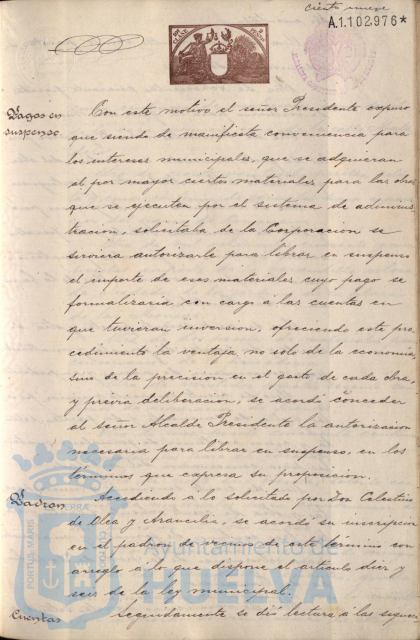 ciento nueve
A.1.102.976*
Pagos en
suspenso.
Con este motivo el señor Presidente expuso
que siendo de manifiesta conveniencia para
los intereses municipales, que se adquieran
al por mayor ciertos materiales para las obras
que se ejecuten por el sistema de adminis-
tracion, solicitaba de la Corporacion se
sirviera autorizarle para librar en suspenso
el importe de esos materiales cuyo pago se
formalizaria con cargo á las cuentas en
que tuvieran inversion, ofreciendo este pro-
cedimiento la ventaja, no solo de la economia,
sino de la precision en el gasto de cada obra,
y previa deliberacion, se acordó conceder
al señor Alcalde Presidente la autorizacion
necesaria para librar en suspenso, en los
términos que expresa su proposicion.
Padron
Accediendo á lo solicitado por Don Celestino
de Ulea y se acordó su inscripcion
en el padron de vecinos de este término con
arreglo á lo que dispone el artículo diez y
seis de la ley municipal.
Cuentas
Seguidamente se dió lectura á las siguien
PORTUS MARIS
Ayuntamiento de
HUELVA